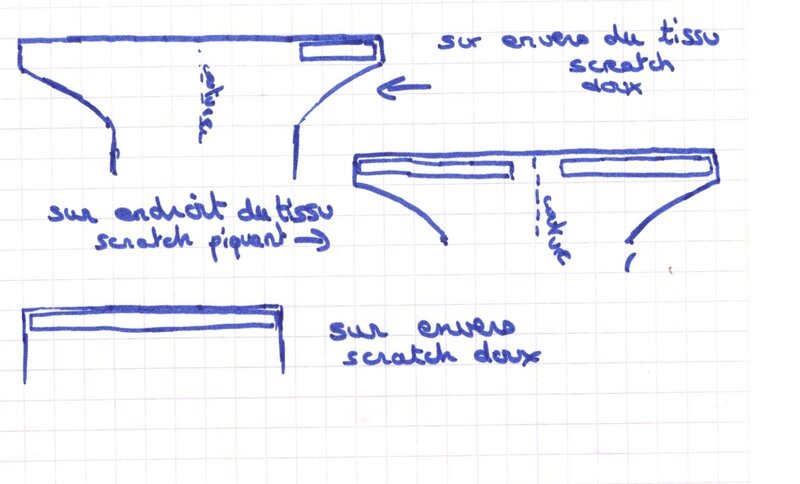 sur envers du tissu
scratch
doux
couture
sur endroit du tissu
scratch piquant
couture
sur envers
scratch doux